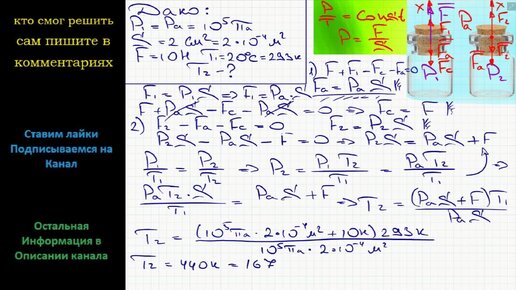 кто смог решить
сам пишите в
комментариях
Ставим лайки
Подписываемся на
Канал
Остальная
Информация в
Описании канала
Дано:
P₁ = Pa = 10⁵ Па
S = 2 см² = 2·10⁻⁴ м²
F = 10Н T₁ = 20°C = 293К
T₂ - ?
P/T = const
P = F/S
1) F + F₁ - Fc - Fa = 0
F₁ = P₁S => F₁ = PaS Fa = PaS
F + PaS - PaS - Fc = 0 => Fc = F
2) F₂ - Fa - Fc = 0 F₂ = P₂S
P₂S - PaS - F = 0 => P₂S = PaS + F
P₁/T₁ = P₂/T₂ => P₂ = P₁T₂/T₁ = PaT₂/T₁
PaT₂S/T₁ = PaS + F => T₂ = (PaS + F)T₁/PaS
T₂ = (10⁵Па · 2·10⁻⁴м² + 10Н) 293К / 10⁵Па · 2·10⁻⁴м²
T₂ = 440К = 167